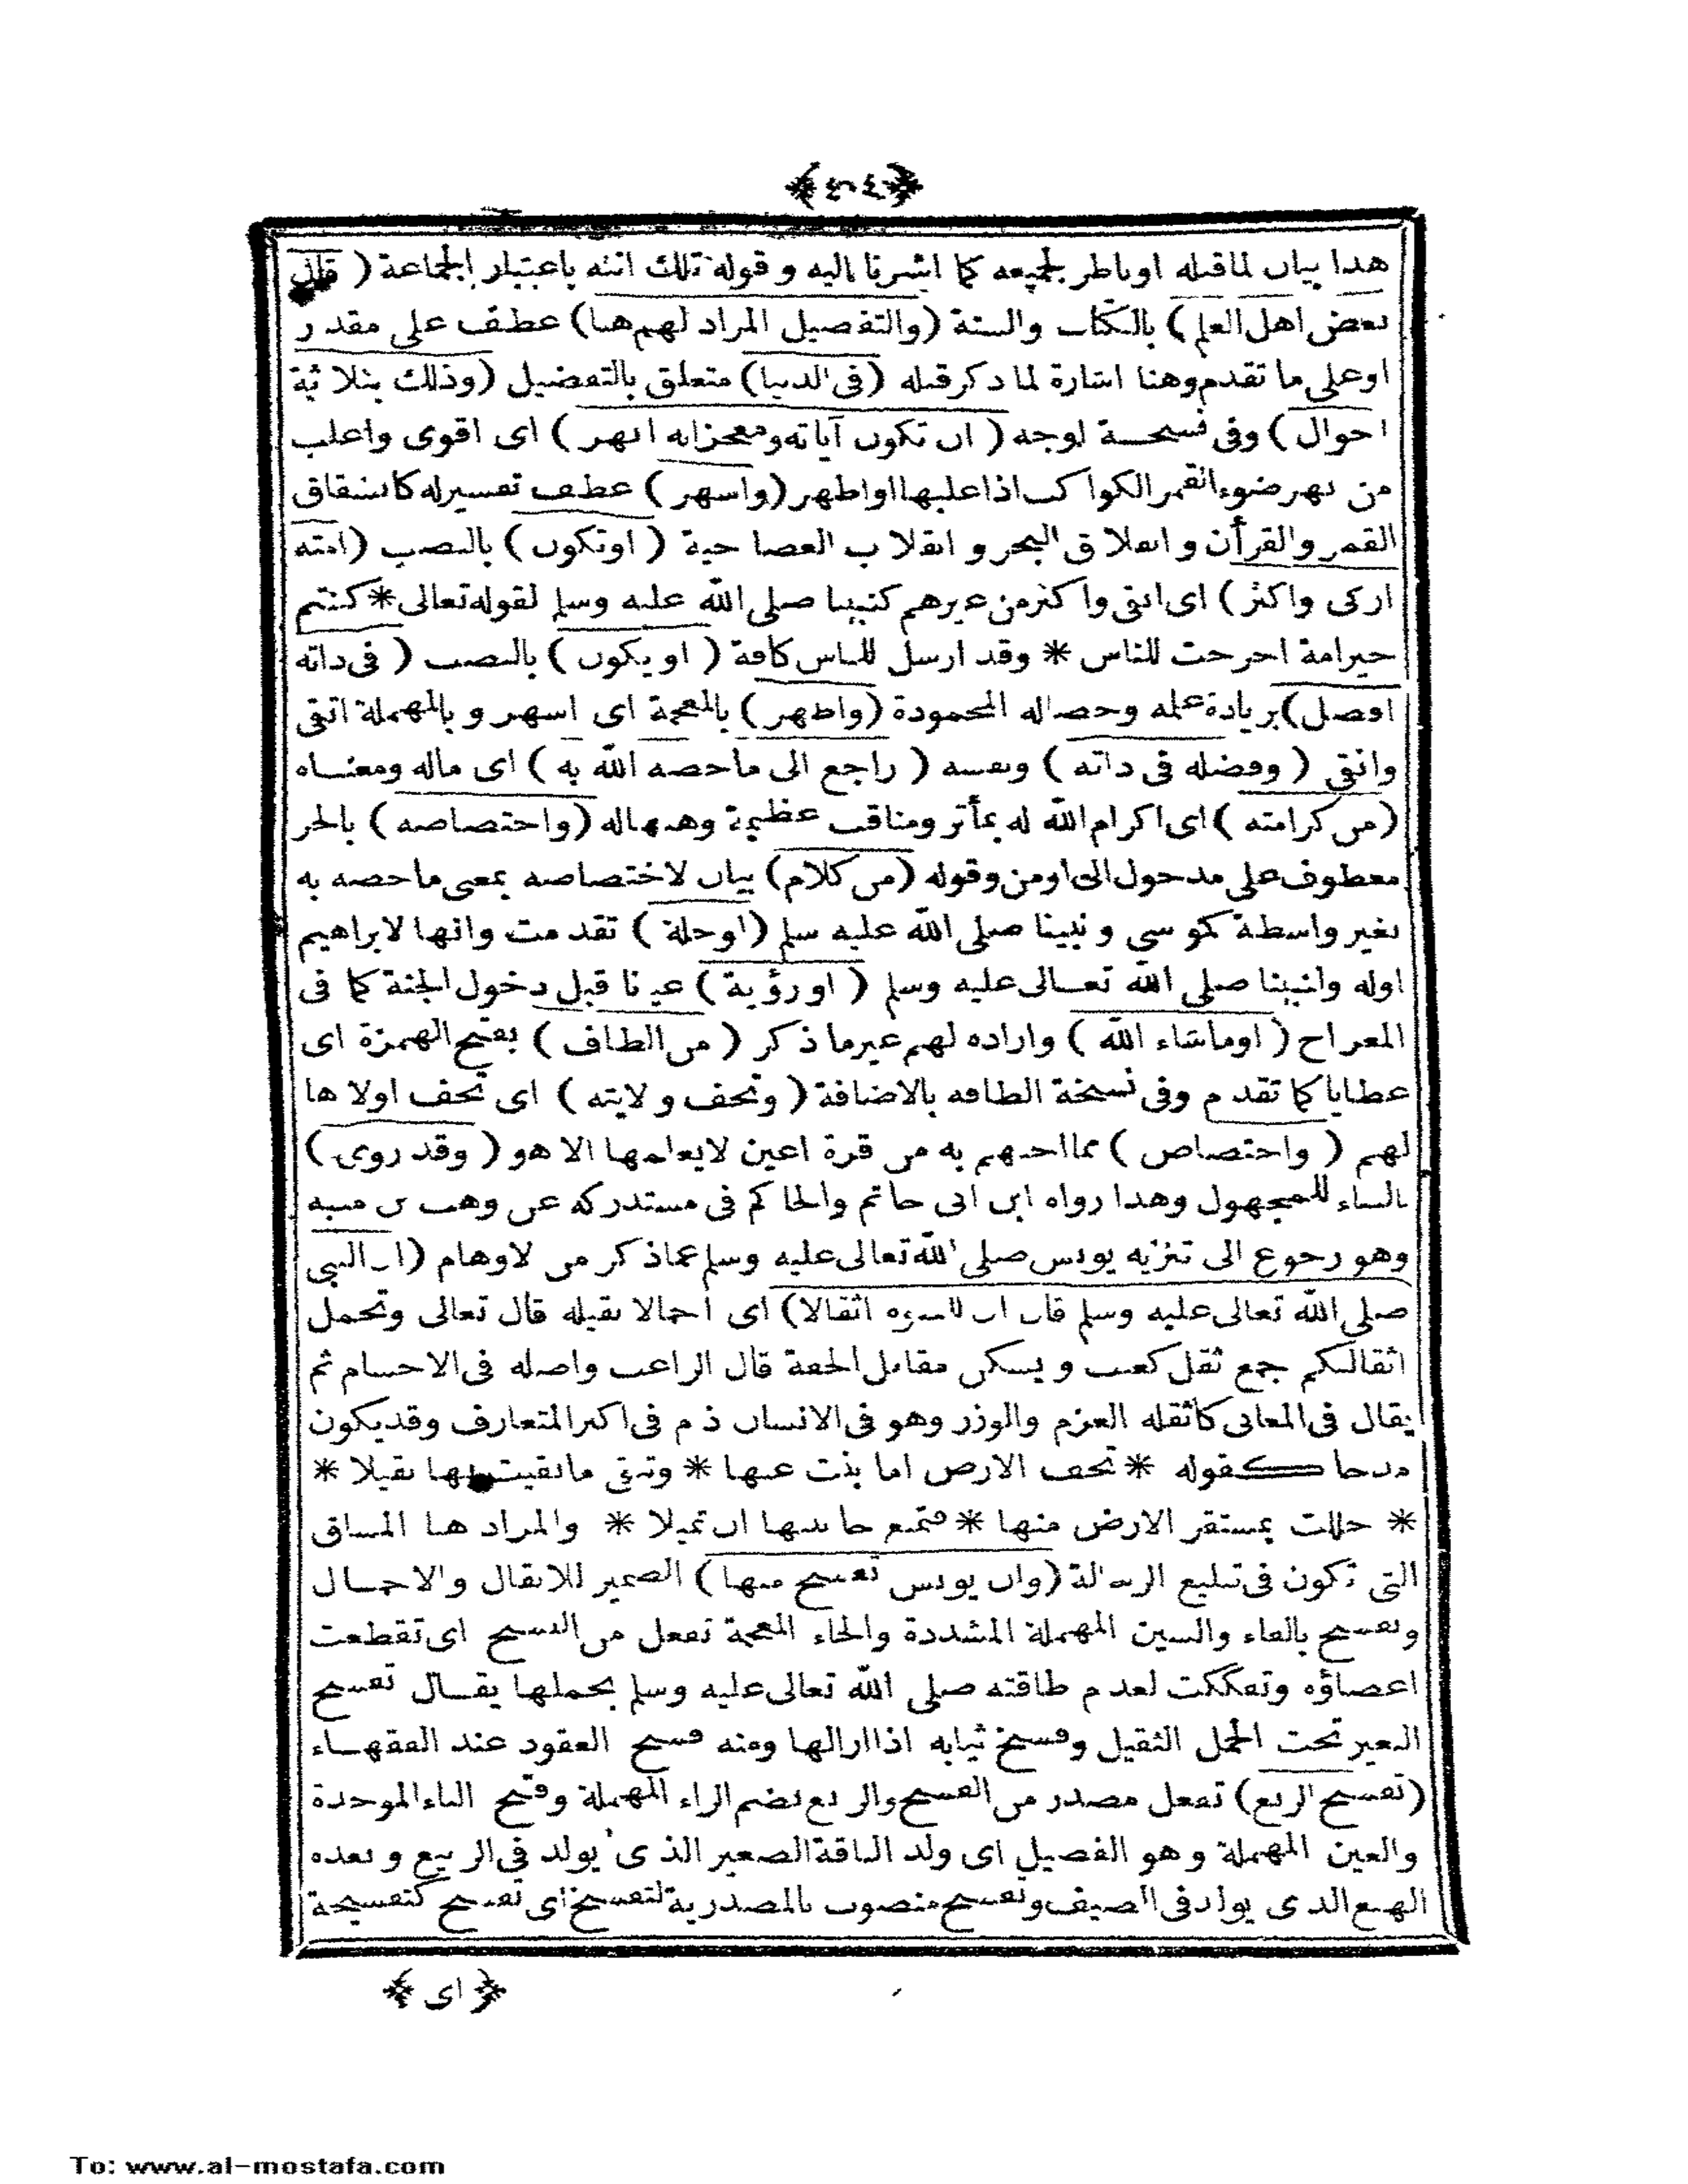 هذا بيان لما قبله او ناظر لجميعه كما اشرنا اليه وقوله تلك انثه باعتبار الجماعة (قال
بعض اهل العلم) بالكتاب والسنة (والتفضيل المراد لهم هنا) عطف على مقدر
او على ما تقدم وهنا اشارة لما ذكر قبله (فى الدنيا) متعلق بالتفضيل (وذلك بثلاثة
احوال) وفى نسخة اوجه (ان تكون آياته ومعجزاته ابهر) اى اقوى واغلب
من بهر ضوء القمر الكواكب اذا غلبها او اظهر (واشهر) عطف تفسير له كانشقاق
القمر والقرأن وانفلاق البحر وانقلاب العصا حية (او تكون) بالنصب (امته
ازكى واكثر) اى اتقى واكثر من غيرهم كنبينا صلى الله عليه وسلم لقوله تعالى * كنتم
خير امة اخرجت للناس * وقد ارسل للناس كافة (او يكون) بالنصب (فى ذاته
افضل) بزيادة علمه وخصاله المحمودة (واظهر) بالمعجمة اى اشهر وبالمهملة اتقى
وانقى (وفضله فى ذاته) ونفسه (راجع الى ما خصه الله به) اى ماله ومعناه
(من كرامته) اى اكرام الله له بمأثر ومناقب عظيمة وهبها له (واختصاصه) بالجر
معطوف على مدخول الى او من وقوله (من كلام) بيان لاختصاصه بمعنى ما خصه به
بغير واسطة كموسى ونبينا صلى الله عليه سلم (او خلة) تقدمت وانها لابراهيم
اوله ولنبينا صلى الله تعالى عليه وسلم (او رؤية) عيانا قبل دخول الجنة كما فى
المعراج (او ما شاء الله) واراده لهم غير ما ذكر (من الطاف) بفتح الهمزة اى
عطايا كما تقدم وفى نسخة الطافه بالاضافة (وتحف ولايته) اى تحف اولاها
لهم (واختصاص) مما احبهم به من قرة اعين لا يعلمها الا هو (وقد روى)
بالبناء للمجهول وهذا رواه ابن ابى حاتم والحاكم فى مستدركه عن وهب بن منبه
وهو رجوع الى تنزيه يونس صلى الله تعالى عليه وسلم عما ذكر من الاوهام (ان النبى
صلى الله تعالى عليه وسلم قال ان للنبوة اثقالا) اى احمالا ثقيلة قال تعالى وتحمل
اثقالكم جمع ثقل كعنب ويسكن مقابل الخفة قال الراغب واصله فى الاجسام ثم
يقال فى المعانى كاثقله الغرم والوزر وهو فى الانسان ذم فى اكثر المتعارف وقد يكون
مدحا كقوله * تخف الارض اما بنت عنها * وتبقى ما بقيت بها ثقيلا *
* حللت بمستقر الارض منها * فتمنع جانبيها ان تميلا * والمراد هنا المشاق
التى تكون فى تبليغ الرسالة (وان يونس تفسخ منها) الضمير للاثقال والاحمال
وتفسخ بالفاء والسين المهملة المشددة والخاء المعجمة تفعل من الفسخ اى تقطعت
اعضاؤه وتفككت لعدم طاقته صلى الله تعالى عليه وسلم بحملها يقال تفسخ
البعير تحت الحمل الثقيل وفسخ ثيابه اذا ازالها ومنه فسخ العقود عند الفقهاء
(تفسخ الربع) تفعل مصدر من الفسخ والربع بضم الراء المهملة وفتح الباء الموحدة
والعين المهملة وهو الفصيل اى ولد الناقة الصغير الذى يولد فى الربيع وبعده
الهبع الذى يولد فى الصيف وتفسخ منصوب بالمصدرية لتفسخ اى تفسخ كتفسخه
﴿ اى ﴾
To: www.al-mostafa.com